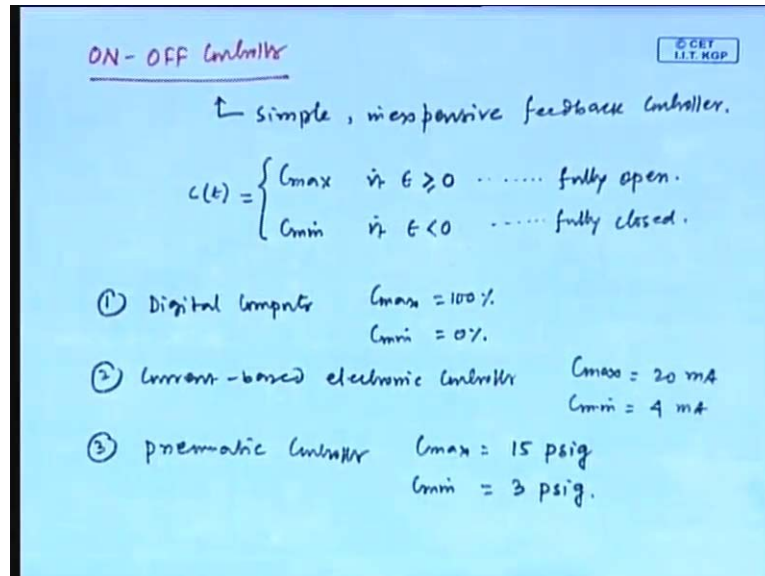 ON-OFF Controller
© CET
I.I.T. KGP
simple, inexpensive feedback controller.
c(t) = { Cmax if ε ≥ 0 ........ fully open.
Cmin if ε < 0 ...... fully closed.
① Digital Computer Cmax = 100%
Cmin = 0%.
② Current-based electronic controller Cmax = 20 mA
Cmin = 4 mA
③ pneumatic controller Cmax = 15 psig
Cmin = 3 psig.